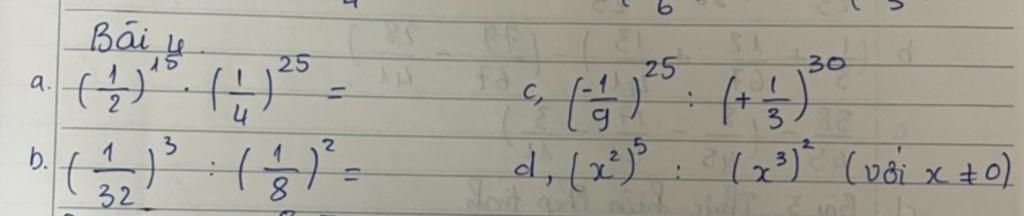 Bài 4
a. (1/2)^15 · (1/4)^25 = c, (-1/9)^25 : (+1/3)^30
b. (1/32)^3 : (1/8)^2 = d, (x^2)^5 : (x^3)^2 (với x ≠ 0)